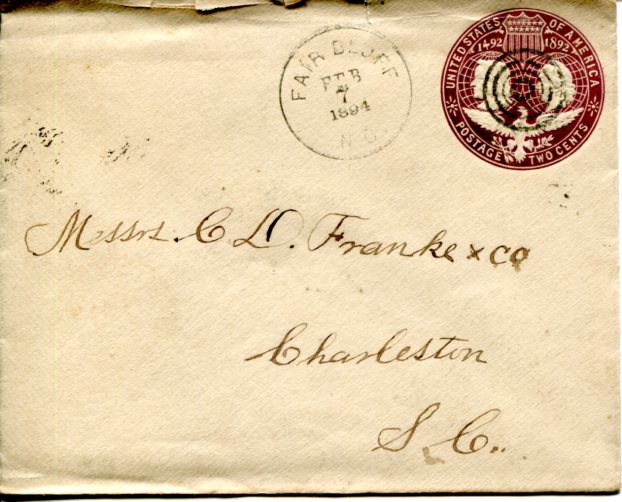 FAIR BLUFF
FEB
7
1894
N.C.
UNITED STATES OF AMERICA
1492 1892
POSTAGE TWO CENTS
Messrs. C. D. Franke & co
Charleston
S. C.